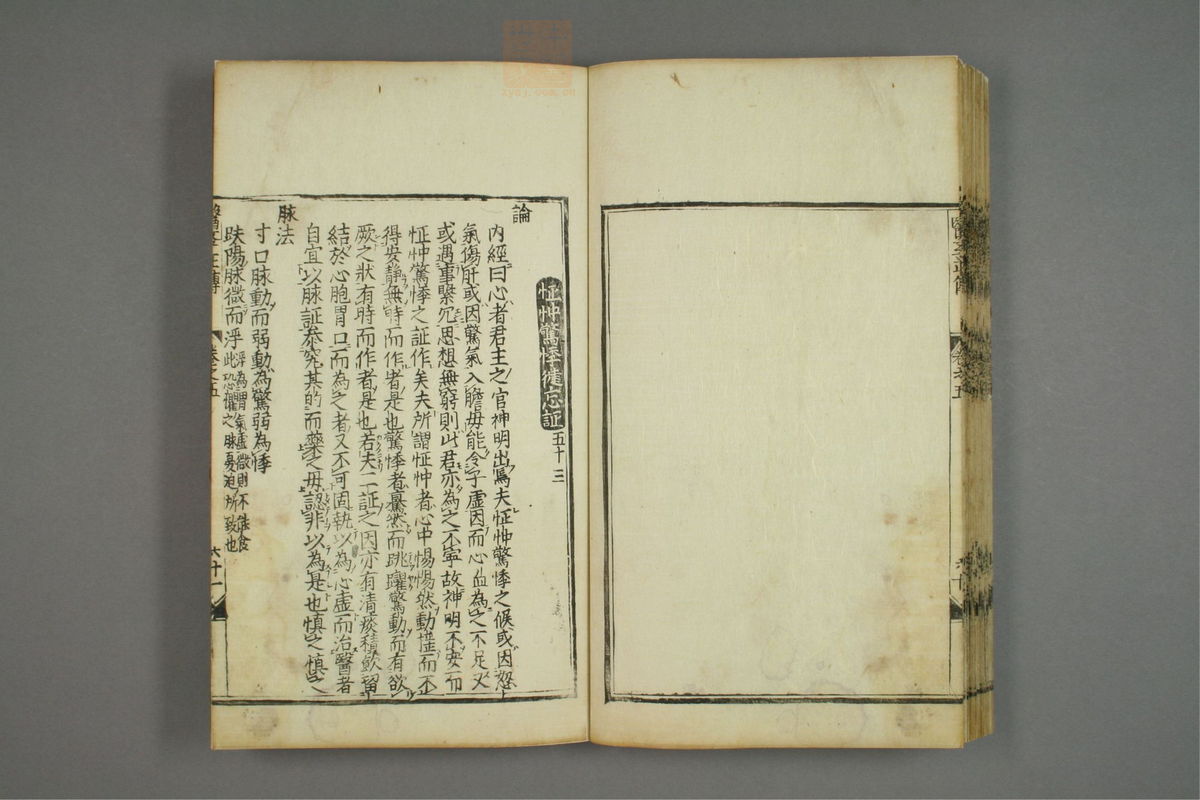 醫學正傳
卷之五
怔忡驚悸健忘証 五十三
論
內經曰心者君主之官神明出焉夫怔忡驚悸之候或因怒
氣傷肝或因驚氣入膽母能令子虛因而心血為之不足又
或遇事繁冗思想無窮則此君亦為之不寧故神明不安而
怔忡驚悸之証作矣夫所謂怔忡者心中惕惕然動搖而不
得安靜無時而作者是也驚悸者驀然而跳躍驚動而有欲
厥之狀有時而作者是也若夫二証之因亦有清痰積飲留
結於心胞胃口而為之者又不可固執以為心虛而治醫者
自宜以脉証叅究其的而藥之毋認非以為是也慎之慎之
脉法
寸口脉動而弱動為驚弱為悸
趺陽脉微而浮浮為胃氣虛微則不能食
此恐懼之脉憂迫所致也
醫學正傳
卷之五
六十一